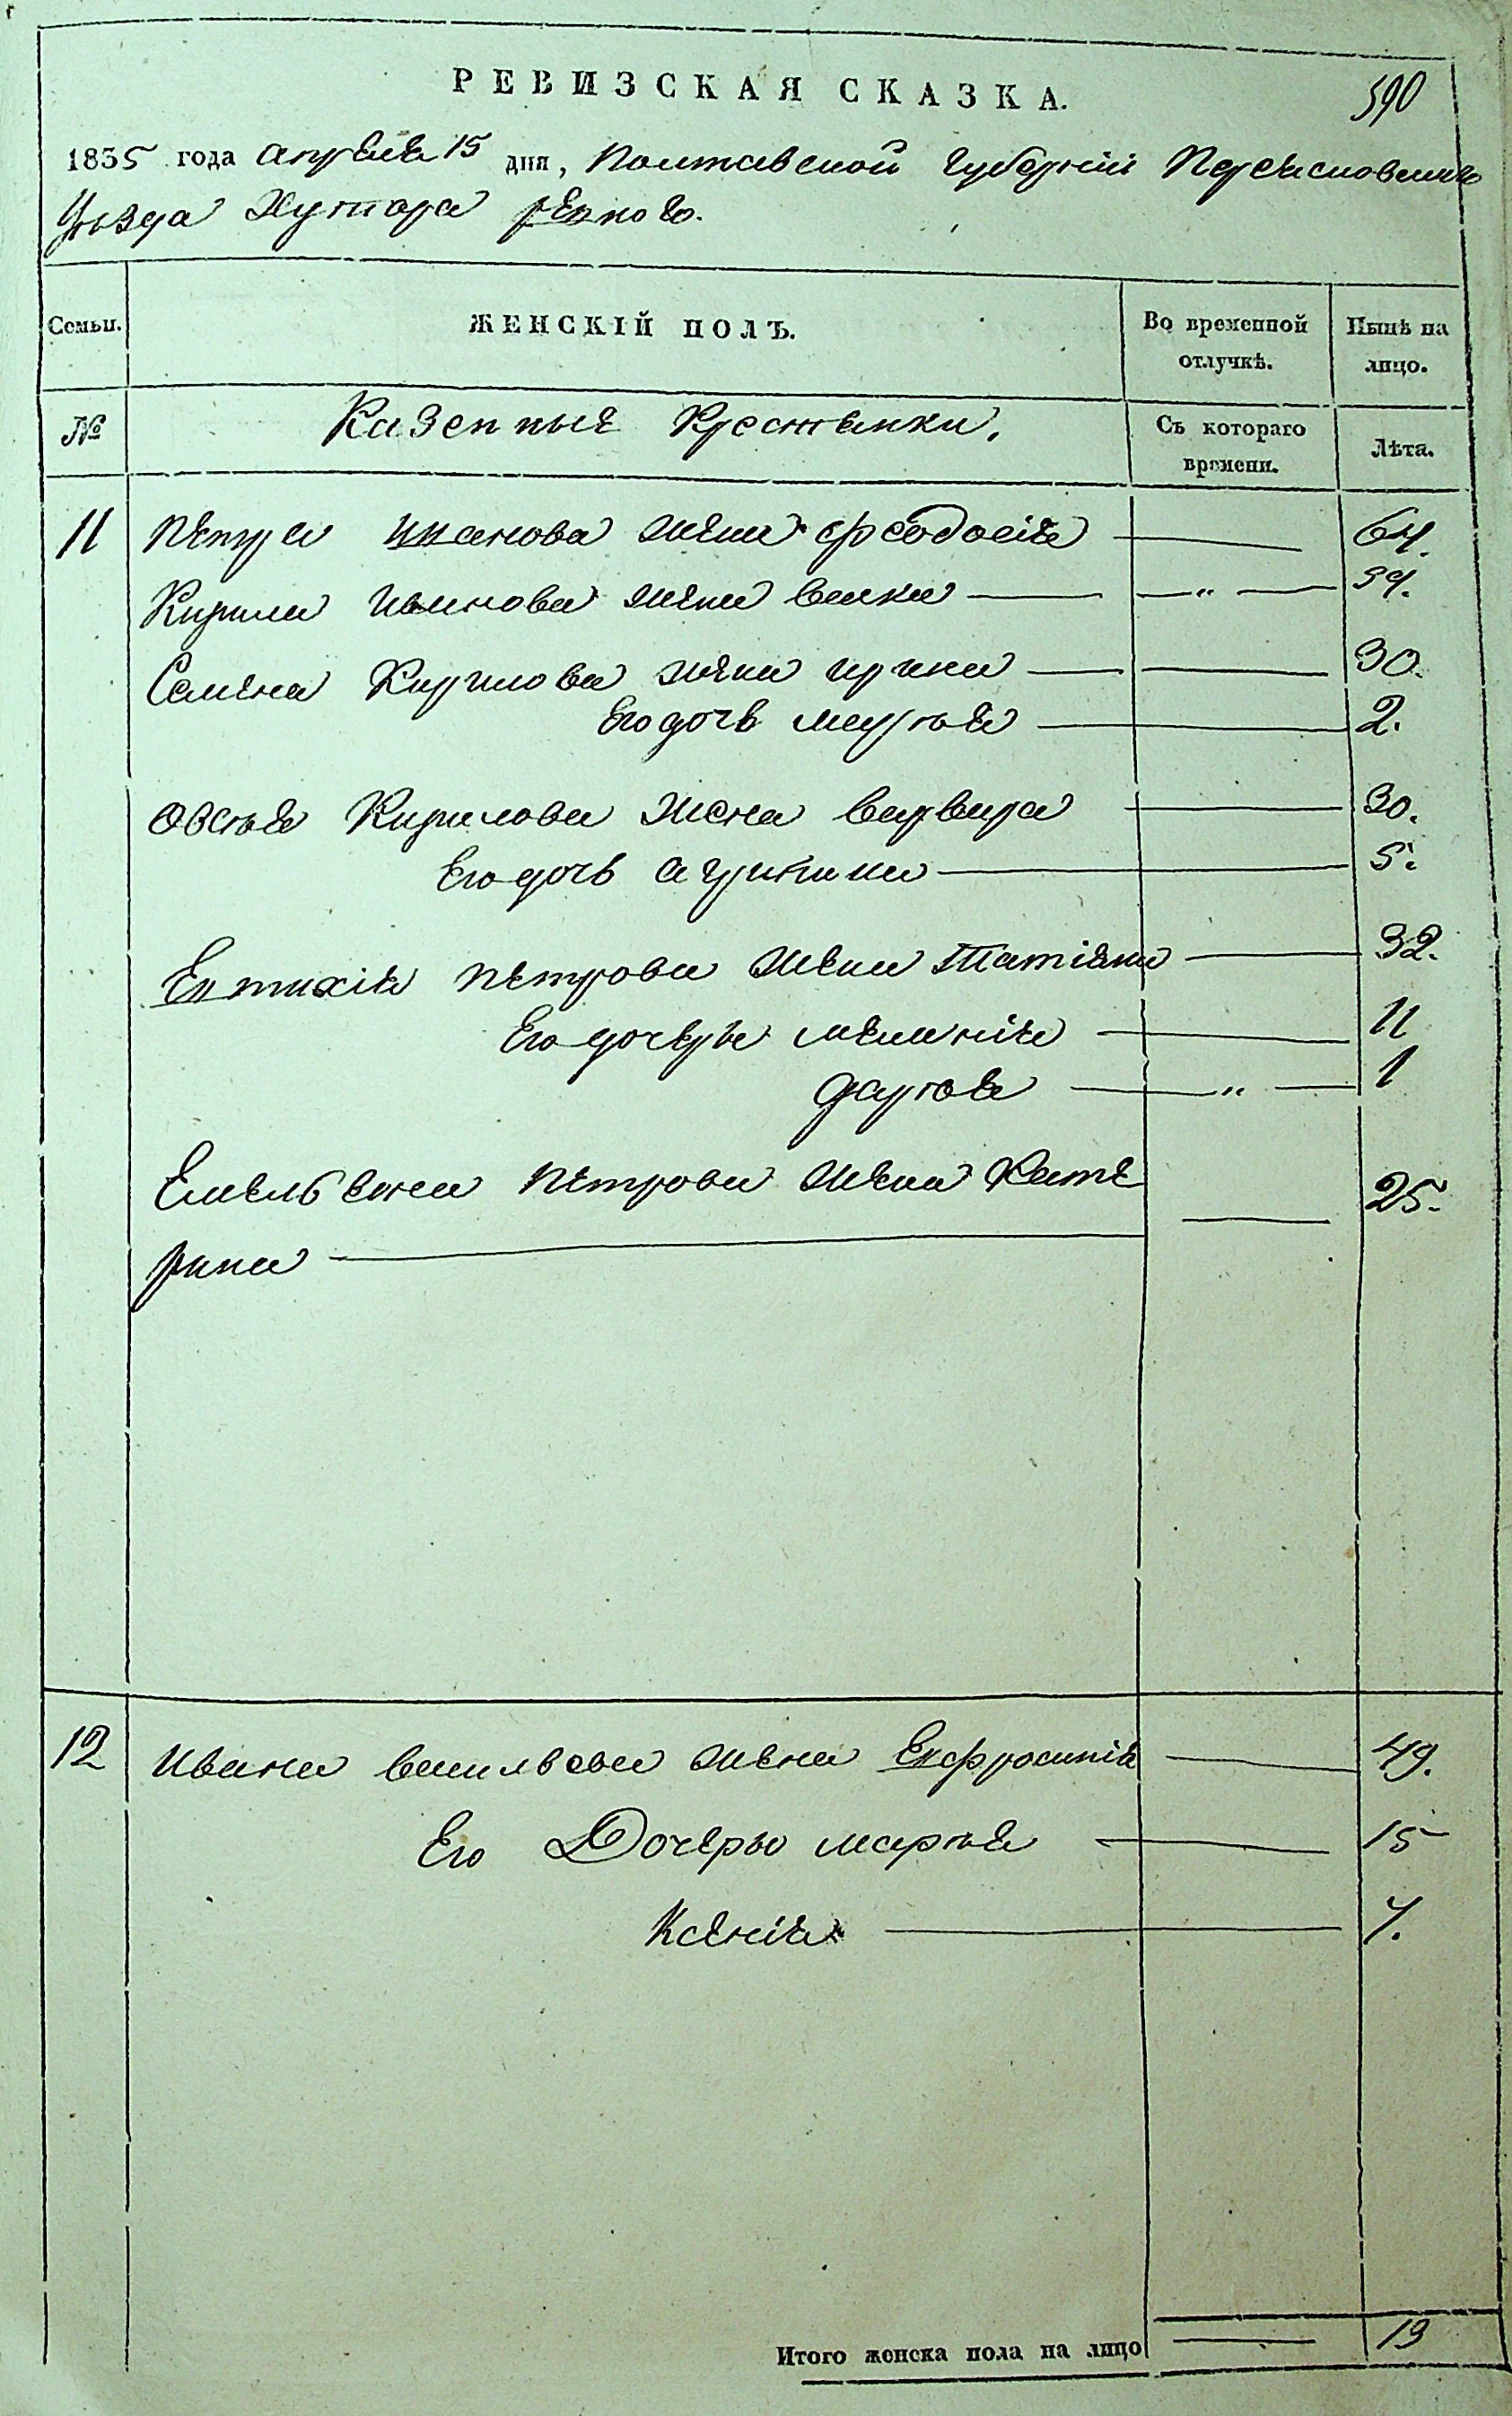 РЕВИЗСКАЯ СКАЗКА.
590
1835 года апреля 15 дня, Полтавской Губернiи Переясловскаго
Уезда Хутора
Семьи. ЖЕНСКIЙ ПОЛЪ. Во временной отлучкѣ. Нынѣ на лицо.
№ Казенныя Крестьянки. Съ котораго времени. Лѣта.
11 Петра Иванова жена феодосiя 64.
Кирила Иванова жена — " — 59.
Семена Кирилова жена ирина 30.
Его дочь марья 2.
Овсѣя Кирилова жена варвара 30.
Его дочь агрипина 5.
Евтихiя петрова жена Татiяна 32.
Его дочери меланiя 11
дарья — " — 1
Емельяна петрова жена Кате 25.
рина
12 Ивана васильева жена Ефросинiя 49.
Его Дочерьи марья 15
Ксенiя 7.
Итого женска пола на лицо 13